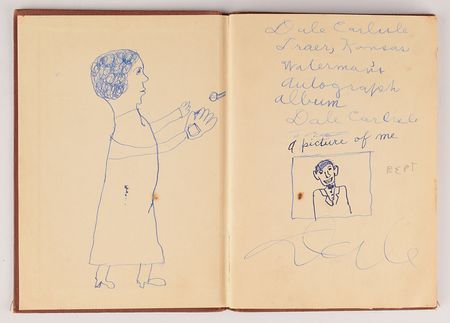 Dale Carlisle
Traer, Kansas
Waterman's
Autograph
album
Dale Carlisle
a picture of me
Dale